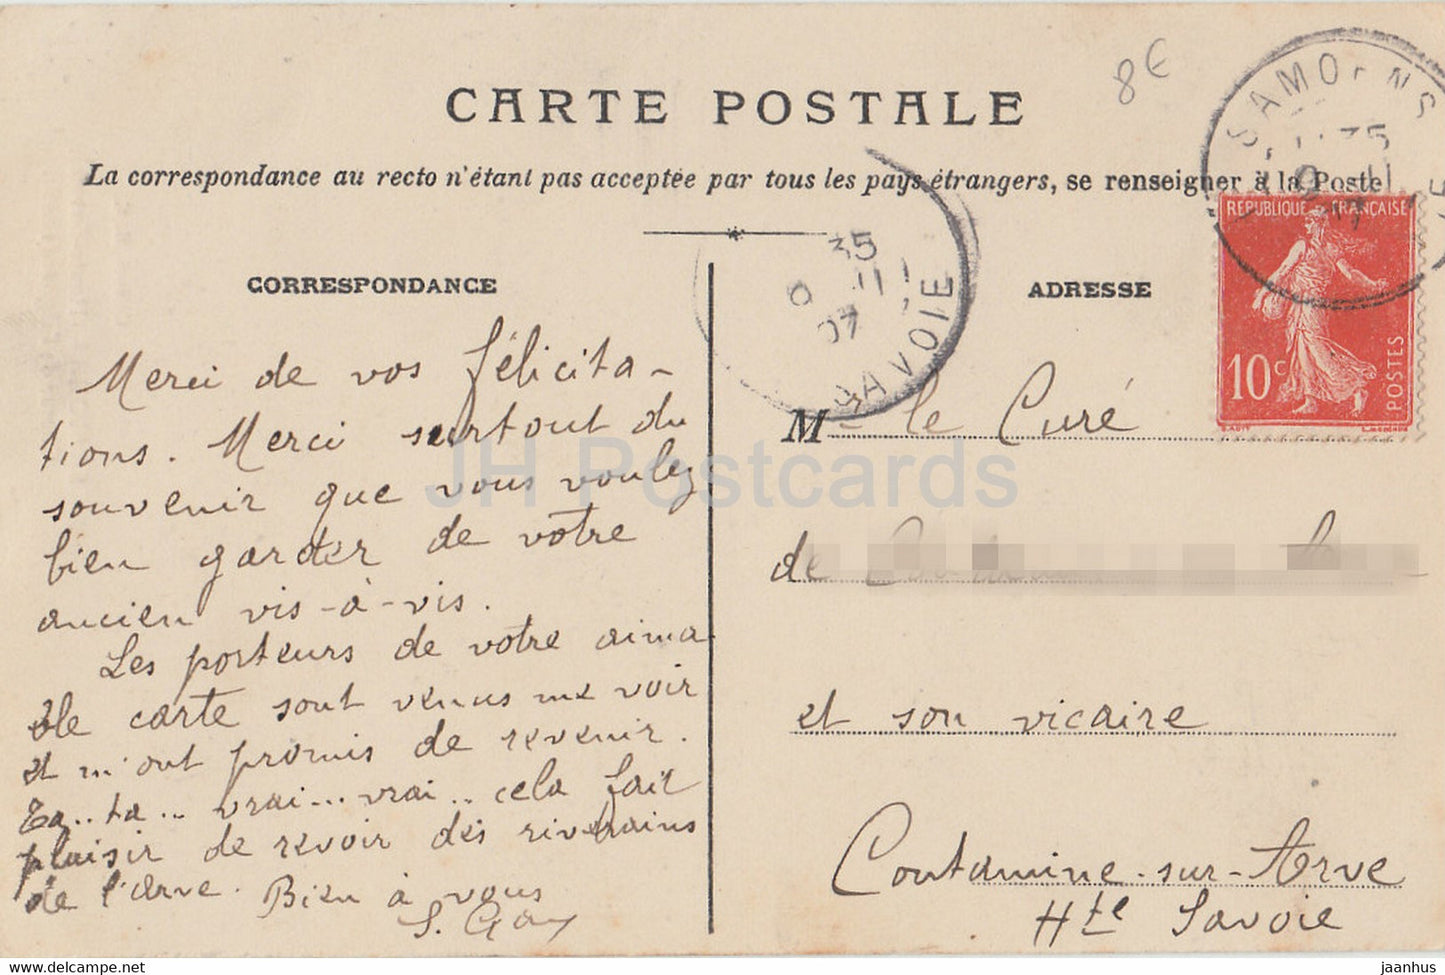 8€
CARTE POSTALE
La correspondance au recto n'étant pas acceptée par tous les pays étrangers, se renseigner à la Poste
SAMOËNS
35
REPUBLIQUE FRANÇAISE
10c
POSTES
35
11
07
SAVOIE
CORRESPONDANCE
Merci de vos félicita-
tions. Merci surtout du
souvenir que vous voulez
bien garder de votre
ancien vis-à-vis.
Les porteurs de votre aima
ble carte sont venus me voir
et m'ont promis de revenir.
Ta..ta.. vrai...vrai.. cela fait
plaisir de revoir des riverains
de l'Arve. Bien à vous
ADRESSE
M le Curé
de
et son vicaire
Contamine-sur-Arve
Hte Savoie
JH Postcards
hippostcard.com/store/jh-postcards
jaanhus